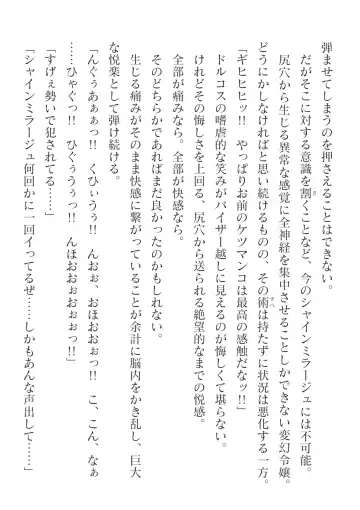 弾ませてしまうのを押さえることはできない。
だがそこに対する意識を割くことなど、今のシャインミラージュには不可能。
尻穴から生じる異常な感覚に全神経を集中させることしかできない変幻令嬢。
どうにかしなければと思い続けるものの、その術は持たずに状況は悪化する一方。
「ギヒヒヒッ!!　やっぱりお前のケツマンコは最高の感触だなッ!!」
ドルコスの嗜虐的な笑みがバイザー越しに見えるのが悔しくて堪らない。
けれどその悔しさを上回る、尻穴から送られる絶望的なまでの悦感。
全部が痛みなら。全部が快感なら。
そのどちらかであればまだ良かったのかもしれない。
生じる痛みがそのまま快感に繋がっていることが余計に脳内をかき乱し、巨大
な悦楽として弾け続ける。
「んぐぅあぁぁっ!!　くひぃうぅっ!!　んおぉ、おほおぉっ!!　こ、こん、なぁ
……ひゃぐっ!!　ひぐぅうぅっ!!　んほおぉおぉぉっ!!」
「すげぇ勢いで犯されてる……」
「シャインミラージュ何回かに一回イってるぜ……しかもあんな声出して……」